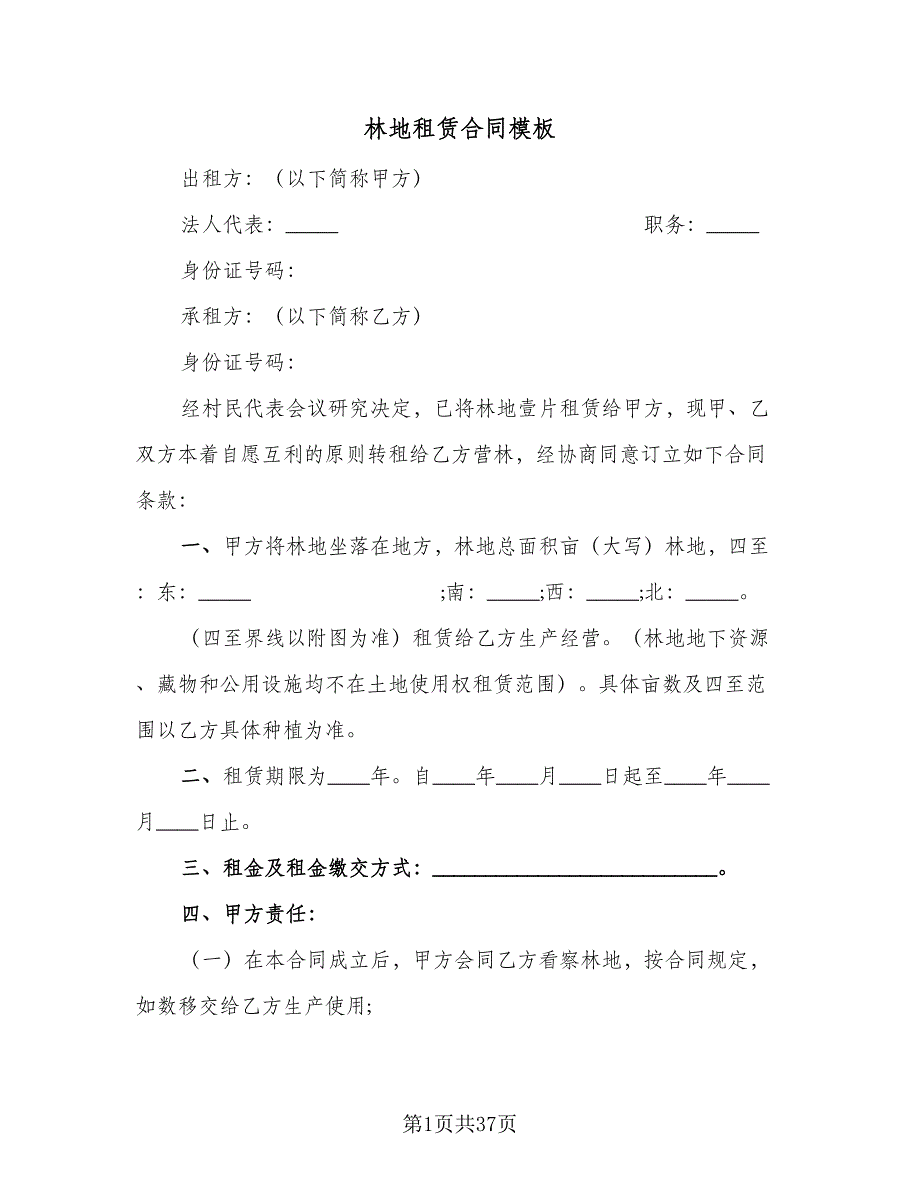 林地租赁合同模板
出租方：（以下简称甲方）
法人代表：_____ 职务：_____
身份证号码：
承租方：（以下简称乙方）
身份证号码：
经村民代表会议研究决定，已将林地壹片租赁给甲方，现甲、乙
双方本着自愿互利的原则转租给乙方营林，经协商同意订立如下合同
条款：
一、甲方将林地坐落在地方，林地总面积亩（大写）林地，四至
：东：_____ ;南：_____;西：_____;北：_____。
（四至界线以附图为准）租赁给乙方生产经营。（林地地下资源
、藏物和公用设施均不在土地使用权租赁范围）。具体亩数及四至范
围以乙方具体种植为准。
二、租赁期限为____年。自____年____月____日起至____年____
月____日止。
三、租金及租金缴交方式：___________________________。
四、甲方责任：
（一）在本合同成立后，甲方会同乙方看察林地，按合同规定，
如数移交给乙方生产使用;
第1页共37页